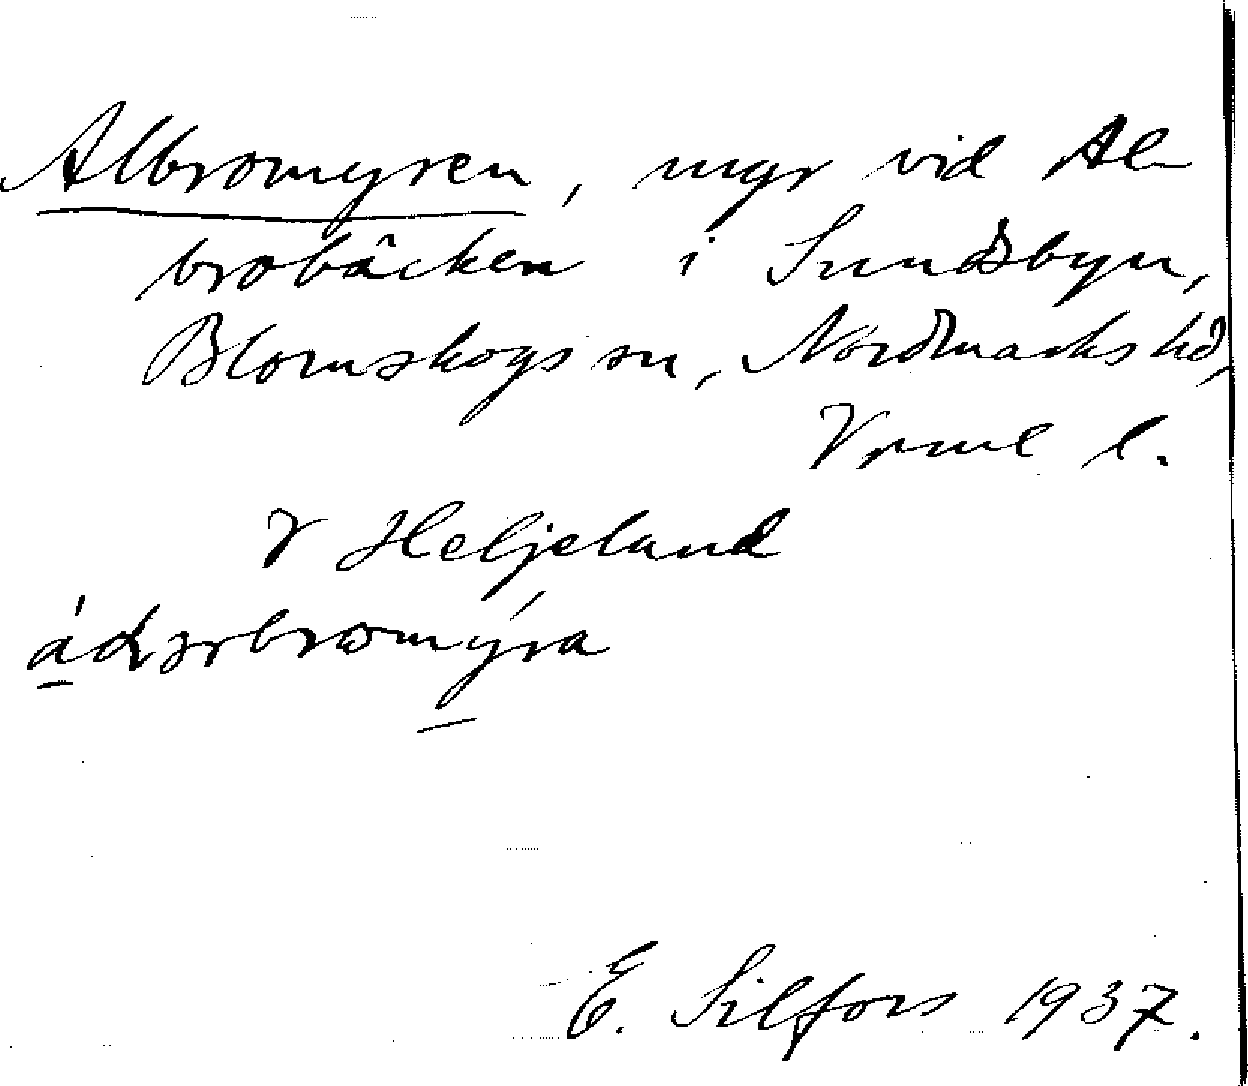 Albromyren, myr vid Al-
brobäcken i Sundsbyn,
Blomskogs sn, Nordmarks hd,
Vrml l.
V Heljeland
E. Silfors 1937.